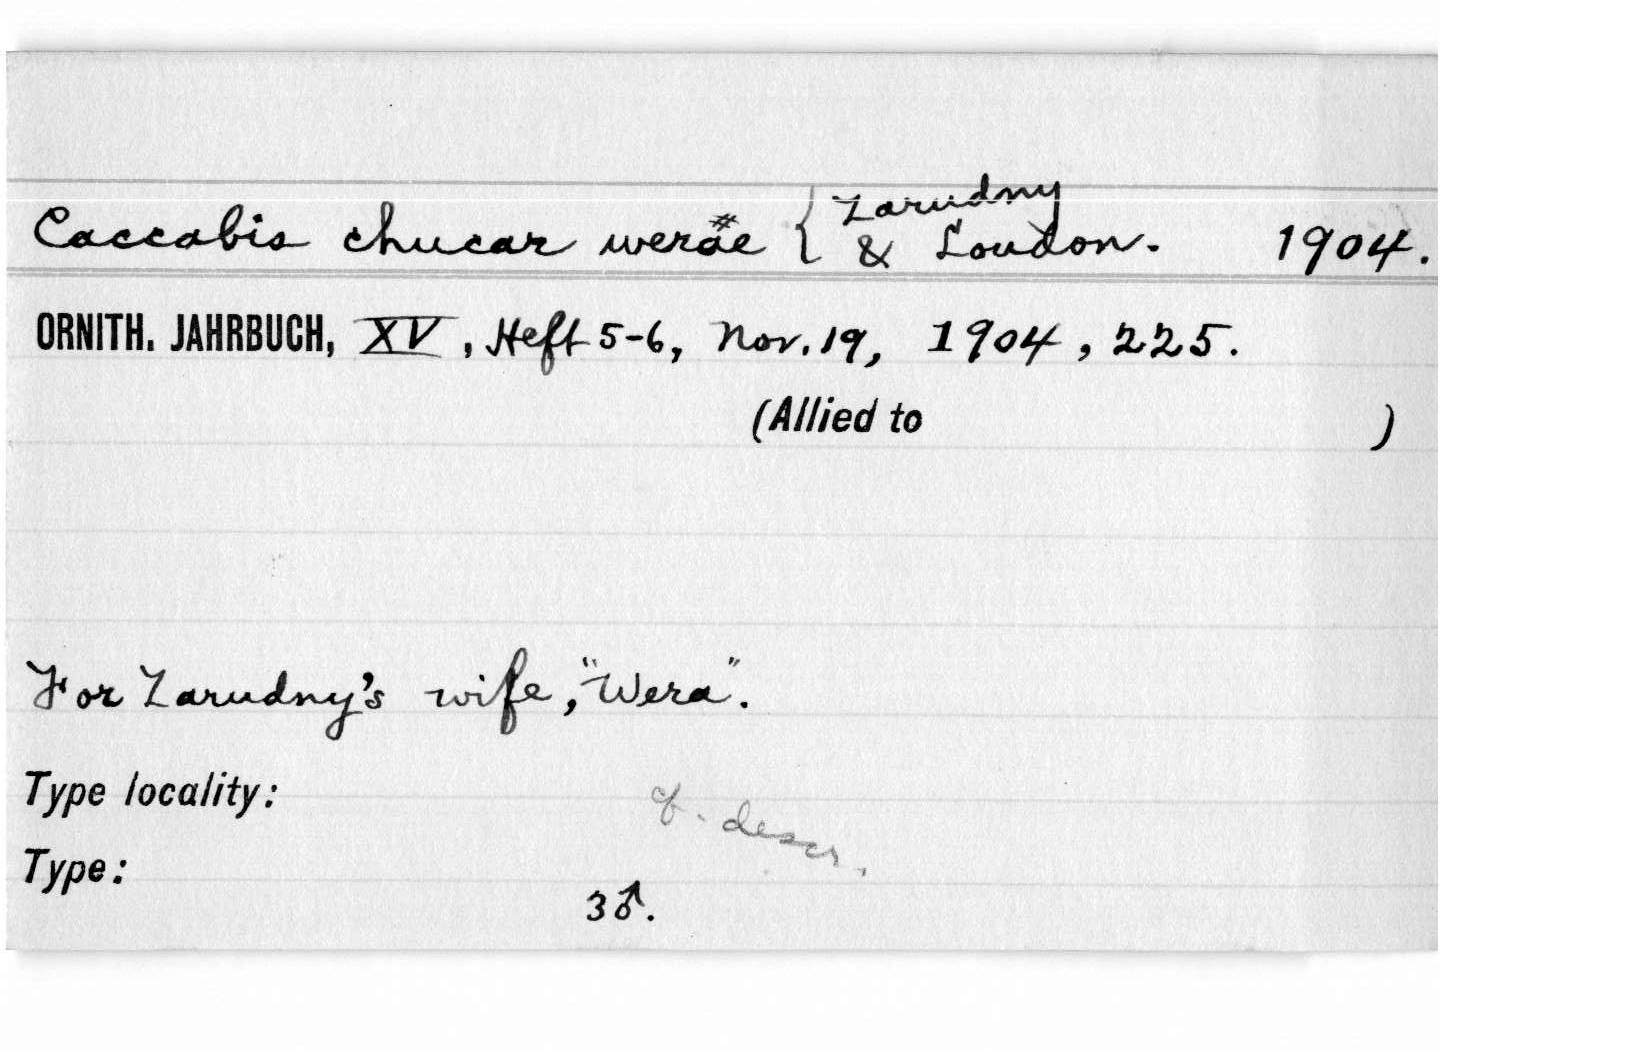 Caccabis chucar werae { Zarudny
& Loudon. 1904.
ORNITH. JAHRBUCH, XV, Heft 5-6, Nov. 19, 1904, 225.
(Allied to )
For Zarudny's wife, "Wera".
Type locality:
cf. descr.
Type:
3♂.